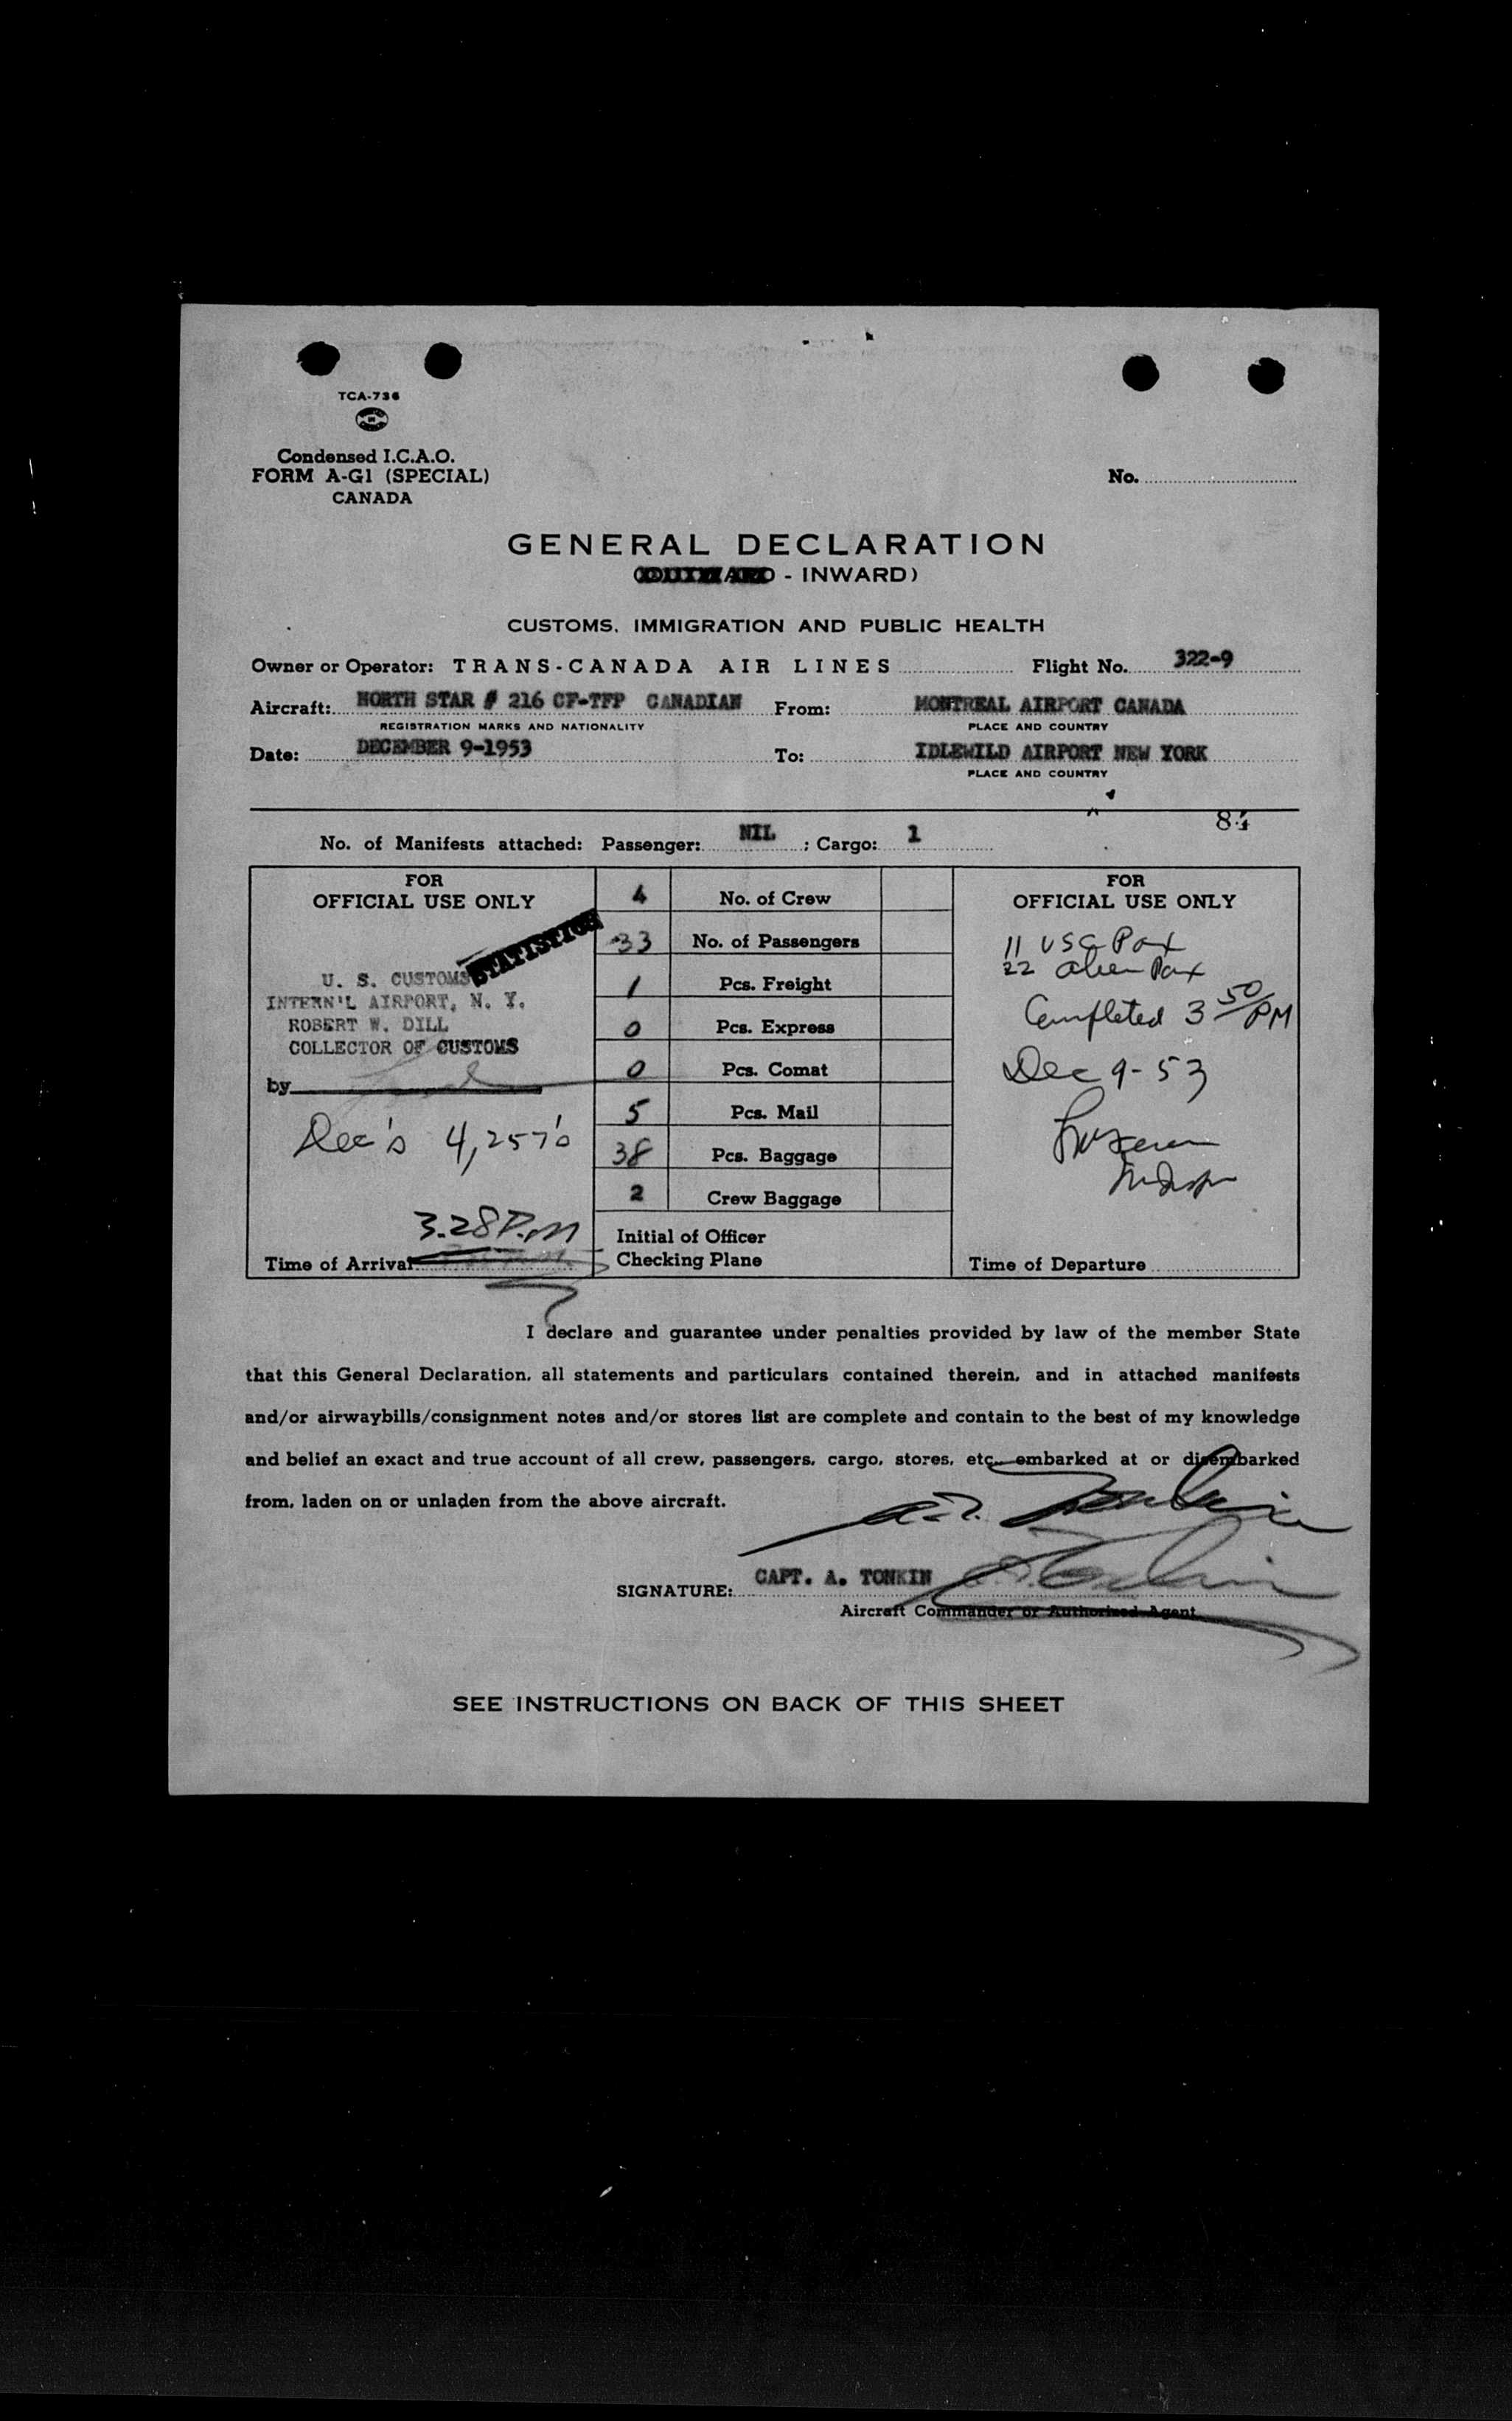 TCA-736
Condensed I.C.A.O.
FORM A-G1 (SPECIAL)
CANADA
No.
GENERAL DECLARATION
- INWARD)
CUSTOMS, IMMIGRATION AND PUBLIC HEALTH
Owner or Operator: TRANS-CANADA AIR LINES Flight No. 322-9
Aircraft: NORTH STAR # 216 CF-TFP CANADIAN From: MONTREAL AIRPORT CANADA
REGISTRATION MARKS AND NATIONALITY PLACE AND COUNTRY
Date: DECEMBER 9-1953 To: IDLEWILD AIRPORT NEW YORK
PLACE AND COUNTRY
84
No. of Manifests attached: Passenger: NIL ; Cargo: 1
FOR
OFFICIAL USE ONLY
STATISTICS
U. S. CUSTOMS
INTERN'L AIRPORT, N. Y.
ROBERT W. DILL
COLLECTOR OF CUSTOMS
by
Dec's 4,257's
3.28 P.m
Time of Arrival
4 No. of Crew
33 No. of Passengers
1 Pcs. Freight
0 Pcs. Express
0 Pcs. Comat
5 Pcs. Mail
38 Pcs. Baggage
2 Crew Baggage
Initial of Officer
Checking Plane
FOR
OFFICIAL USE ONLY
11 USC Pax
22 alien Pax
Completed 3 50/PM
Dec 9-53
Time of Departure
I declare and guarantee under penalties provided by law of the member State
that this General Declaration, all statements and particulars contained therein, and in attached manifests
and/or airwaybills/consignment notes and/or stores list are complete and contain to the best of my knowledge
and belief an exact and true account of all crew, passengers, cargo, stores, etc., embarked at or disembarked
from, laden on or unladen from the above aircraft.
SIGNATURE: CAPT. A. TONKIN
Aircraft Commander or Authorized Agent
SEE INSTRUCTIONS ON BACK OF THIS SHEET